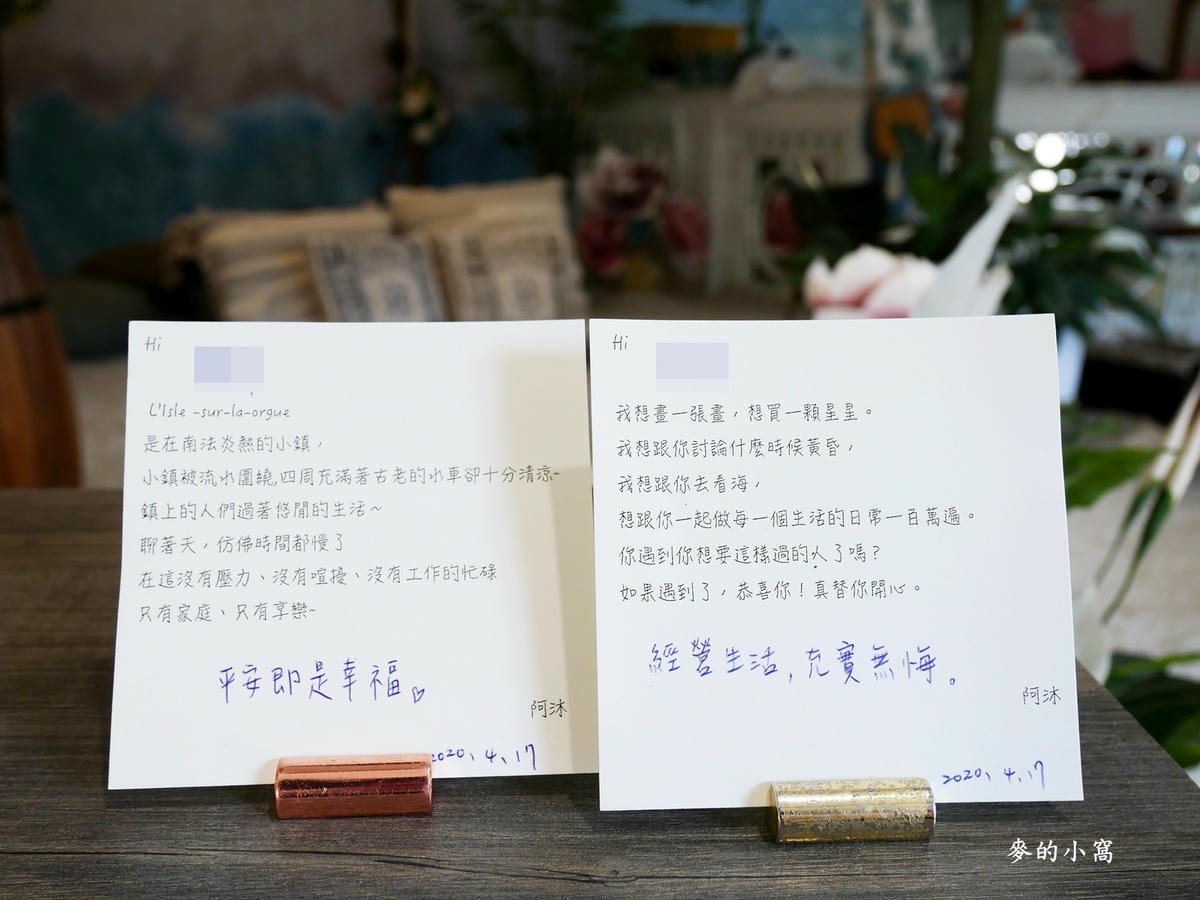 Hi
L'Isle -sur-la-orgue
是在南法炎熱的小鎮，
小鎮被流水圍繞,四周充滿著古老的水車卻十分清涼~
鎮上的人們過著悠閒的生活~
聊著天，仿佛時間都慢了
在這沒有壓力、沒有喧擾、沒有工作的忙碌
只有家庭、只有享樂~
平安即是幸福♡
阿沐
2020、4、17
Hi
我想畫一張畫，想買一顆星星。
我想跟你討論什麼時候黃昏，
我想跟你去看海，
想跟你一起做每一個生活的日常一百萬遍。
你遇到你想要這樣過的人了嗎？
如果遇到了，恭喜你！真替你開心。
經營生活，充實無悔。
阿沐
2020、4、17
麥的小窩